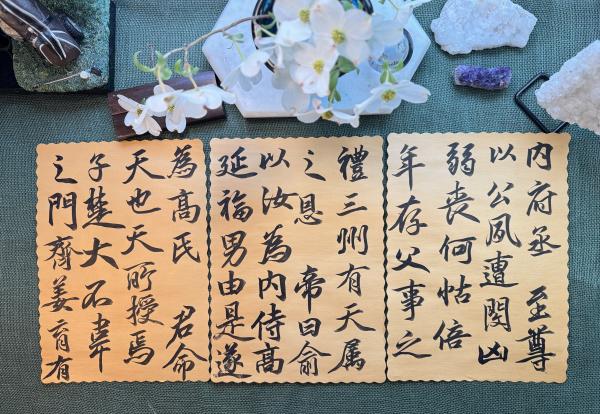 内府丞 至尊
以公夙遭閔凶
弱喪何怙倍
年存父事之
禮三州有天属
之恩 帝曰俞
以汝為内侍高
延福男由是遂
為高氏 君命
天也天所授焉
子楚大不韋
之門齊姜育有